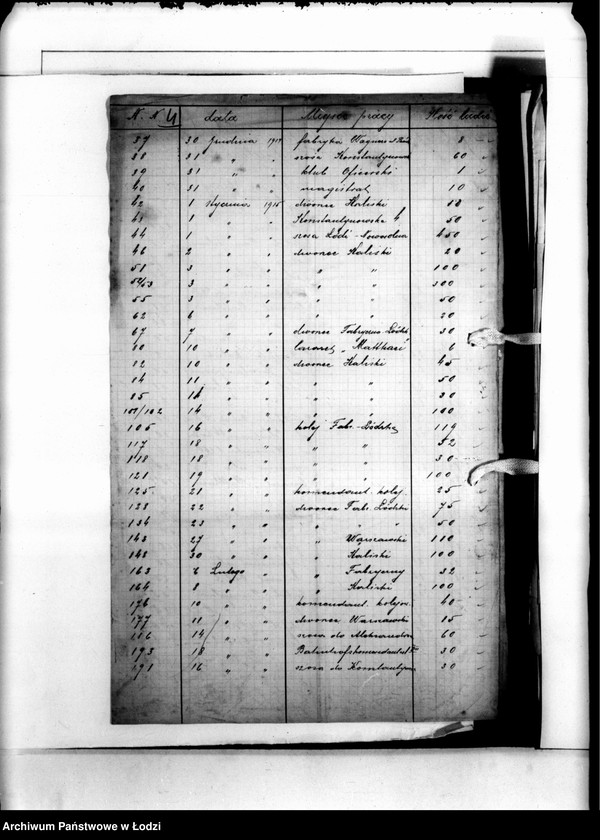 N. N data Miejsce pracy Ilość ludzi
37 30 grudnia 1914 fabryka 8
38 31 " " szosa Konstantynowska 60
39 31 " " klub Oficerski 1
40 31 " " magistrat 10
42 1 stycznia 1915 dworzec Kaliski 18
1 " " Konstantynowska 4 50
44 1 " " szosa Łódź - 450
46 2 " " dworzec Kaliski 20
51 3 " " " " 100
52/53 3 " " " " 300
55 3 " " " " 50
62 6 " " " " 20
67 7 " " dworzec Fabryczno-Łódzki 30
80 10 " " lazaret „Matthäi 6
12 10 " " dworzec Kaliski 45
14 11 " " " " 50
15 " " " " 30
101/102 14 " " " " 100
105 16 " " kolej Fabr.-Łódzka 119
117 18 " " " " 52
118 18 " " " " 30
121 19 " " " " 100
125 21 " " komendant. kolej. 25
128 22 " " dworzec Fabr. Łódzki 75
134 23 " " " " 50
143 27 " " " Warszawski 110
148 30 " " " Kaliski 100
163 6 Lutego " " Fabryczny 32
164 8 " " " Kaliski 100
176 10 " " komendant. kolejow. 40
177 11 " " dworzec Warszawski 15
14 " " szosa do Aleksandrowa 60
193 18 " " Bahnhofskommandantur 30
291 16 " " szosa do Konstantynowa 30
Archiwum Państwowe w Łodzi